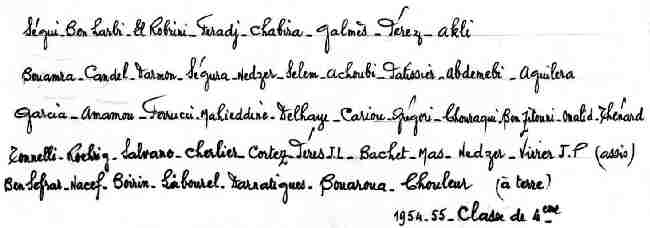 Ségui - Ben Larbi - El Robrini - Feradj - Chabira - Galmès - Pérez - Akli
Bouamra - Candel - Darmon - Ségura - Nedzer - Selem - Achoubi - Patissier - Abdemebi - Aguilera
Garcia - Anamou - Ferrucci - Mahieddine - Delhaye - Cariou - Grégori - Chouraqui - Ben Jitouni - Oualid - Thénard
Zonnelli - Roehrig - Salvano - Cherlier - Cortez - Pérès J.L - Bachet - Mas - Nedzer - Vivier J.P (assis)
Ben Sefrat - Nacef - Boirin - Labourel - Darnatigues - Bouaroua - Chouleur (à terre)
1954-55 - Classe de 4ème